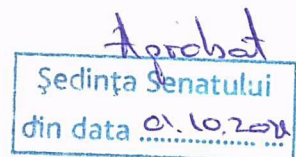 Aprobat
Ședința Senatului
din data 01.10.